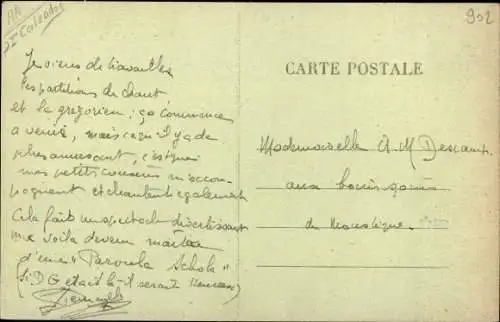 AK
Calvados
902
Je viens de travailler
les partitions de chant
et le grégorien ; ça commence
a venir, mais ce qu'il y a de
plus amusant, c'est que
mes petits cousins m'accom-
pagnent et chantent également
Cela fait un spectacle divertissant
me voila devenu maître
d'une "Parvula Schola"
(si D G etait là il serait heureux)
CARTE POSTALE
Mademoiselle A. M Descamps
aux bons soins
de